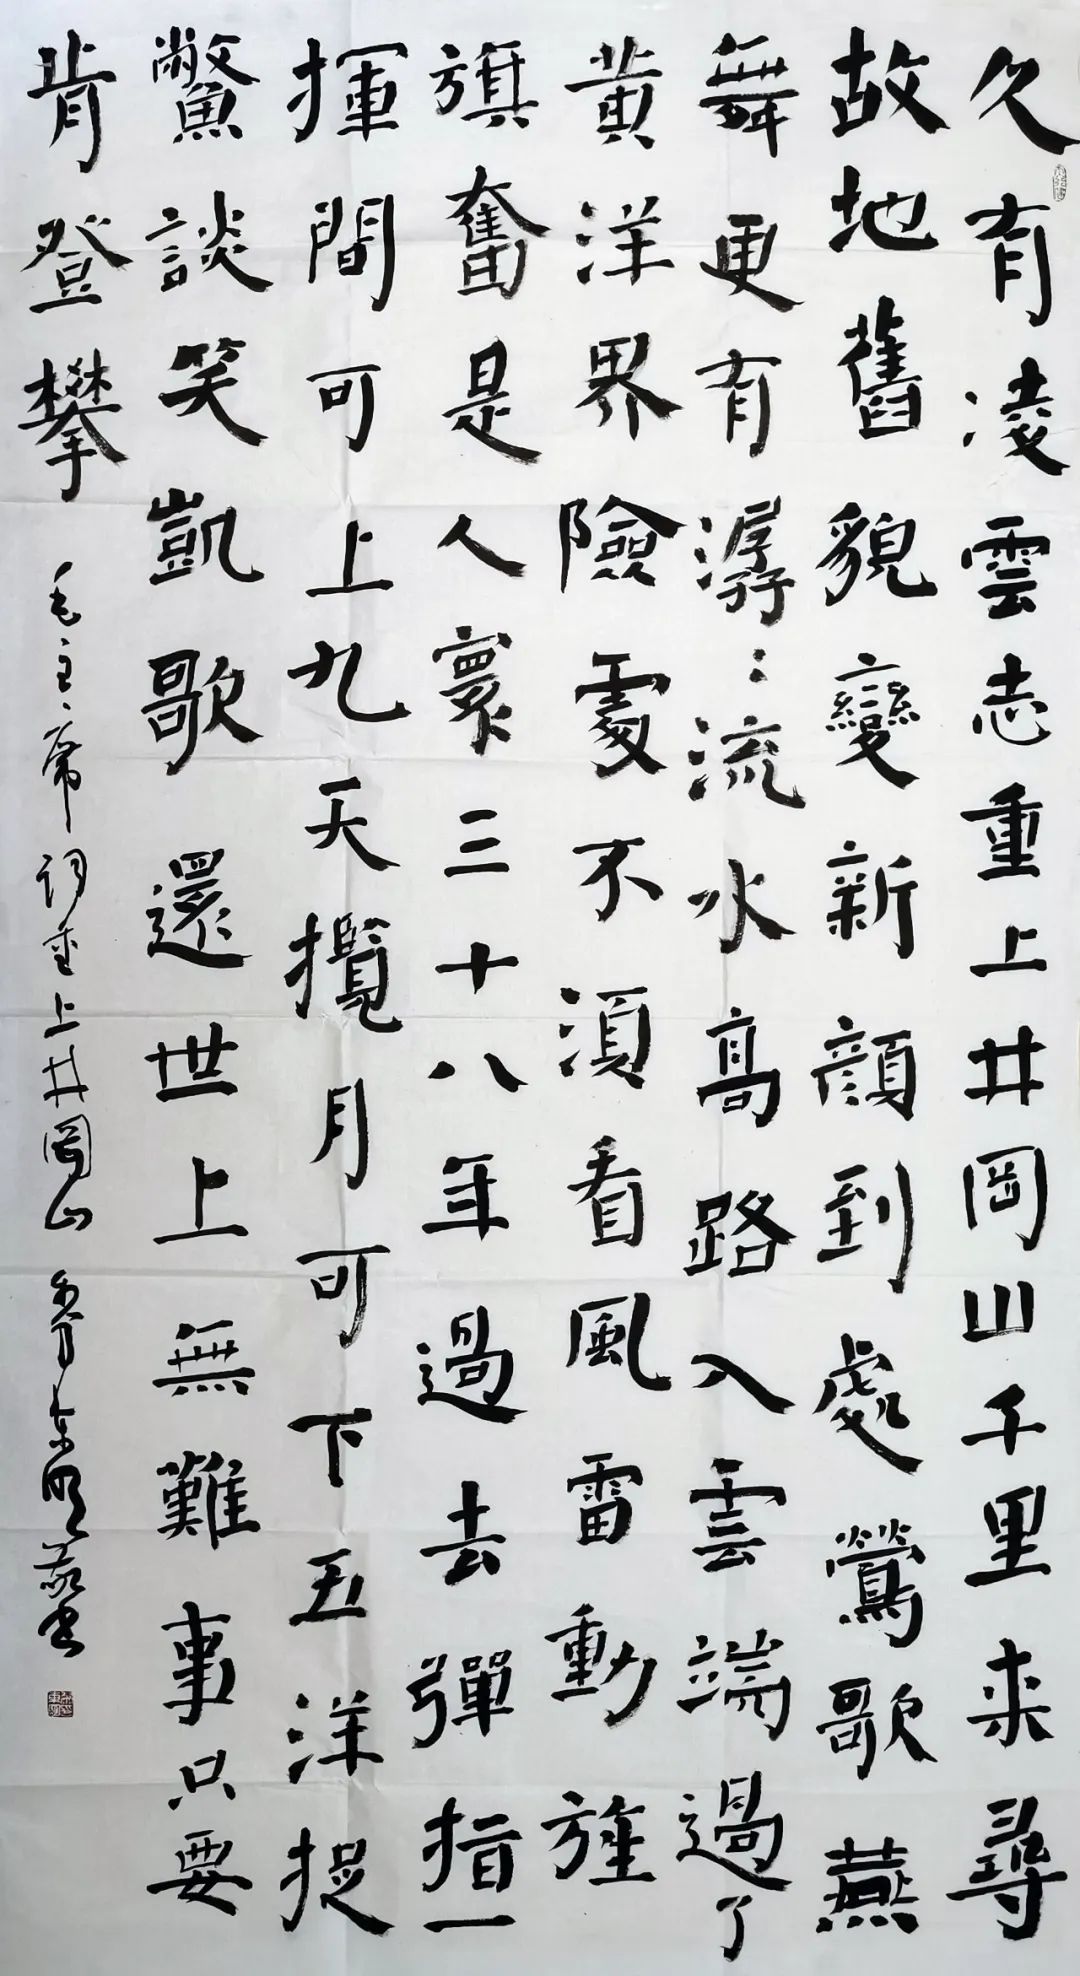 久有凌雲志重上井岡山千里来尋
故地舊貌變新顔到處鶯歌燕
舞更有潺〻流水高路入雲端過了
黄洋界險處不須看風雷動旌
旗奮是人寰三十八年過去彈指一
揮間可上九天攬月可下五洋捉
鱉談笑凱歌還世上無難事只要
肯登攀
毛主席詞重上井岡山